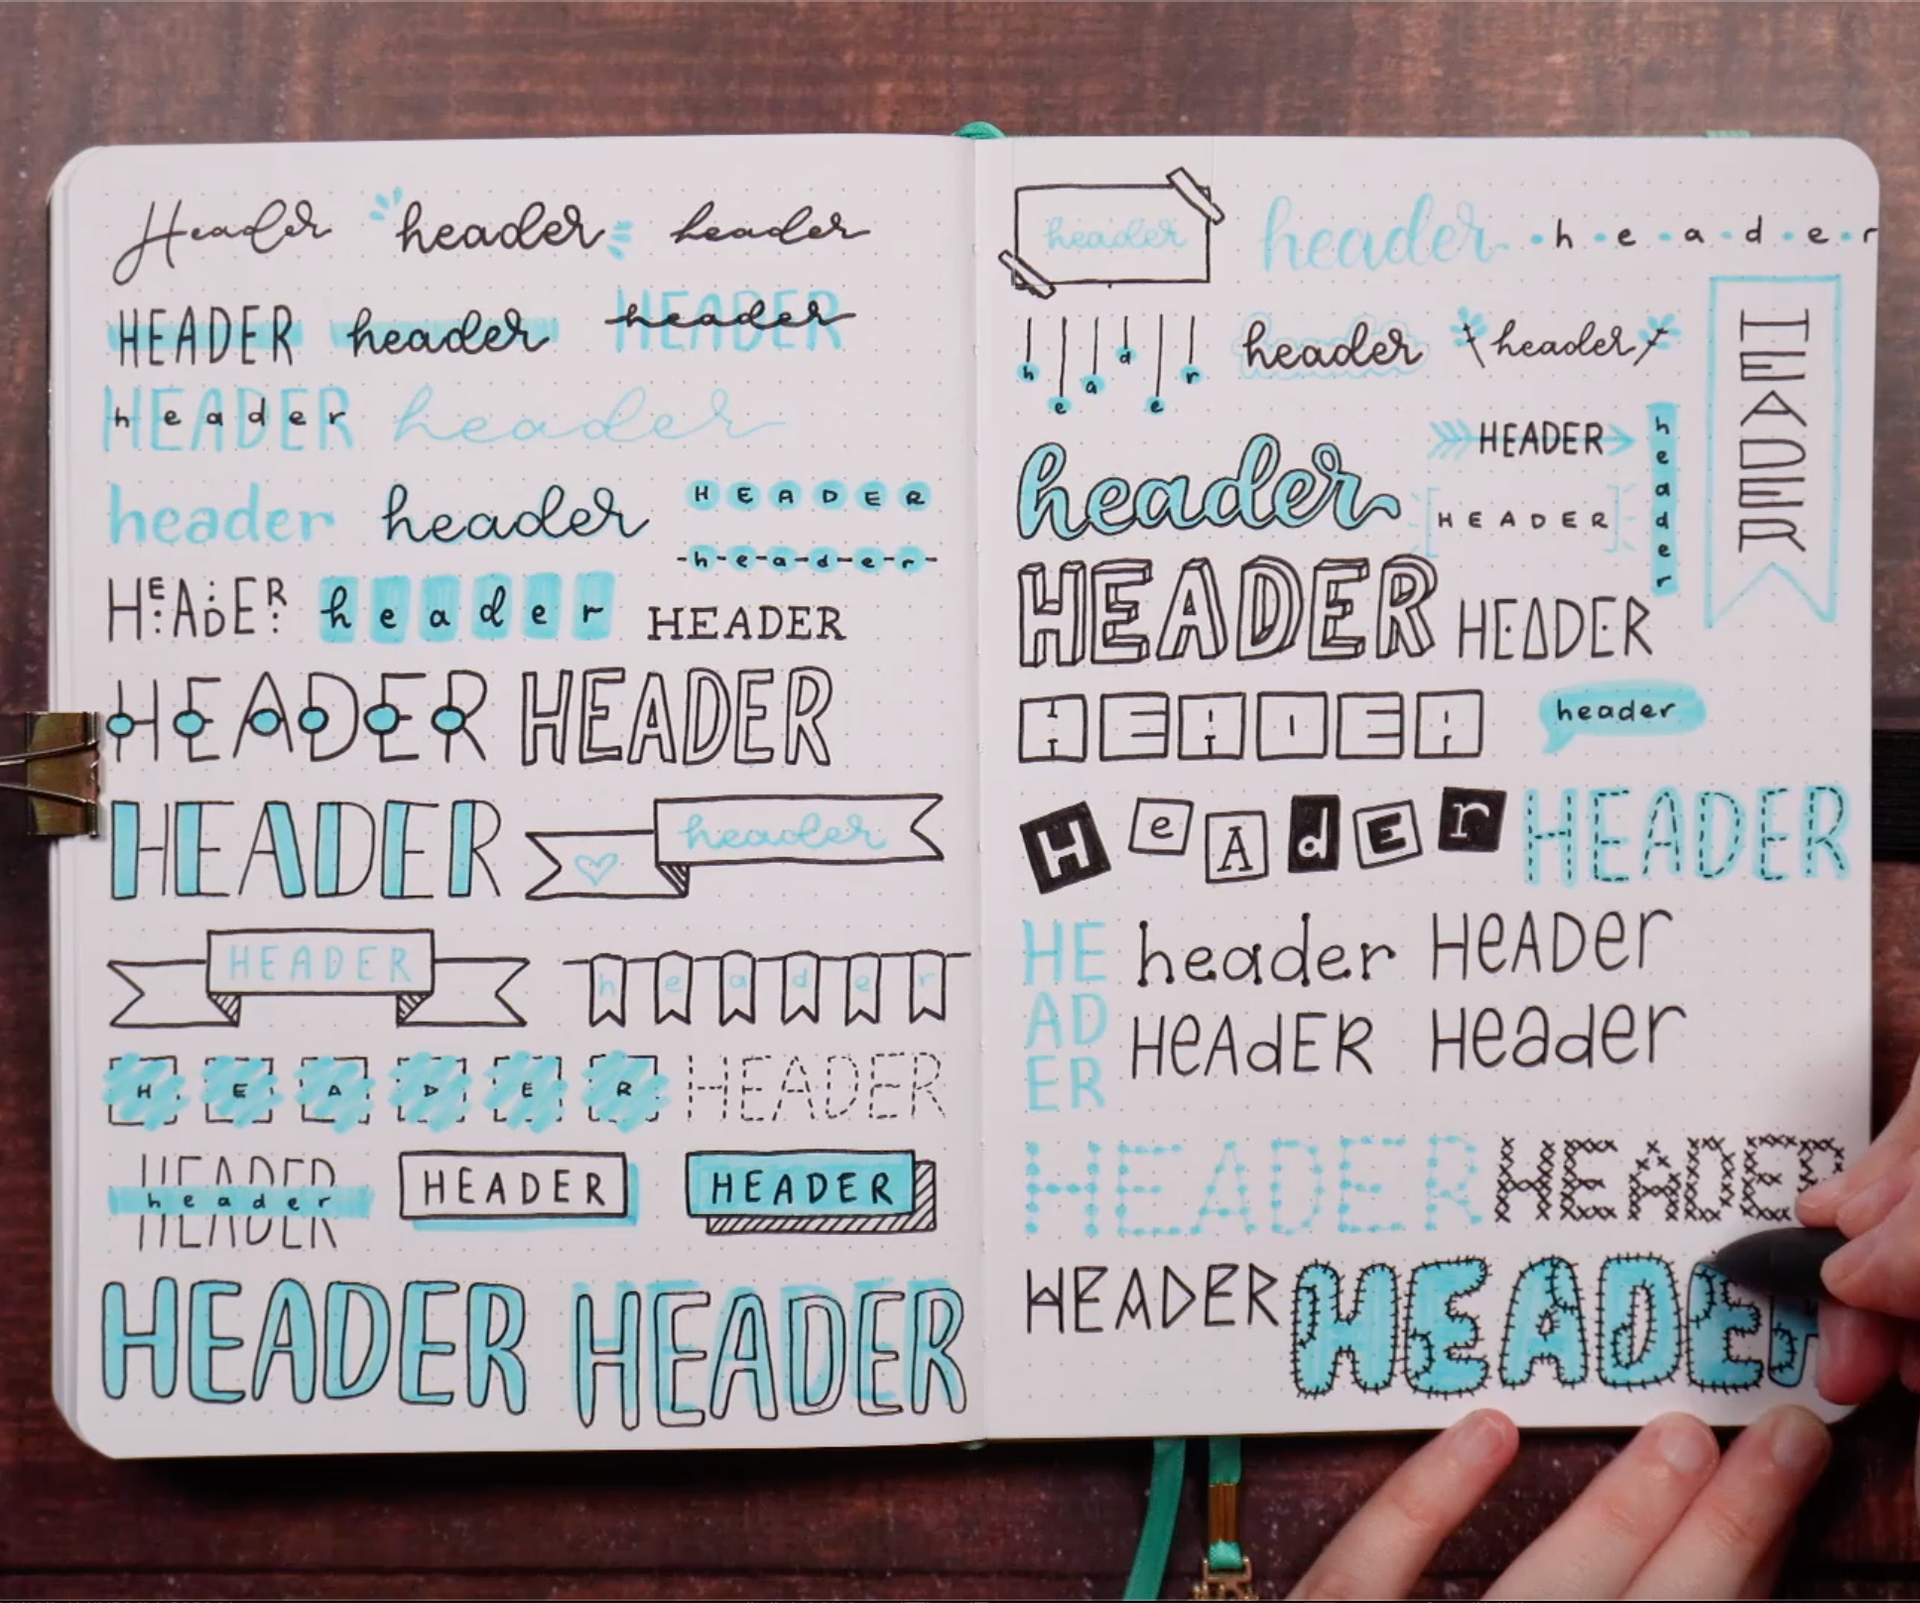 Header header header
HEADER header HEADER header
HEADER h e a d e r header
header header H E A D E R
-h-e-a-d-e-r-
HEADER h e a d e r HEADER
HEADER HEADER
HEADER ♡ header
HEADER h e a d e r
H E A D E R HEADER
HEADER h e a d e r HEADER HEADER
HEADER HEADER
header header •h•e•a•d•e•r
h e a d e r header header HEADER
header HEADER header
[HEADER]
HEADER HEADER
HEADER header
HeAdEr HEADER
HE header HeADer
AD HeAdER Header
ER
HEADER HEADER
HEADER HEADER